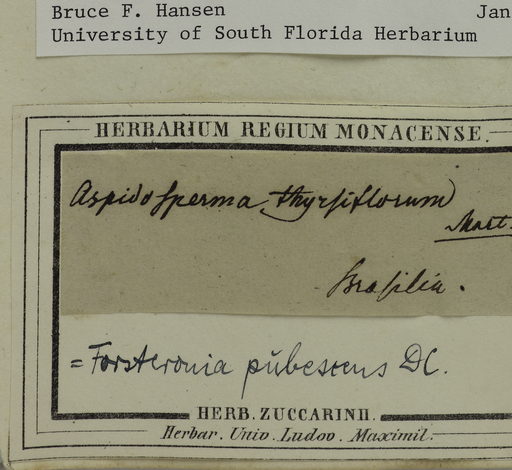 Bruce F. Hansen Jan
University of South Florida Herbarium
HERBARIUM REGIUM MONACENSE.
Aspidosperma thyrsiflorum
Mart.
Brasilia.
= Forsteronia pubescens DC.
HERB. ZUCCARINII.
Herbar. Univ. Ludov. Maximil: